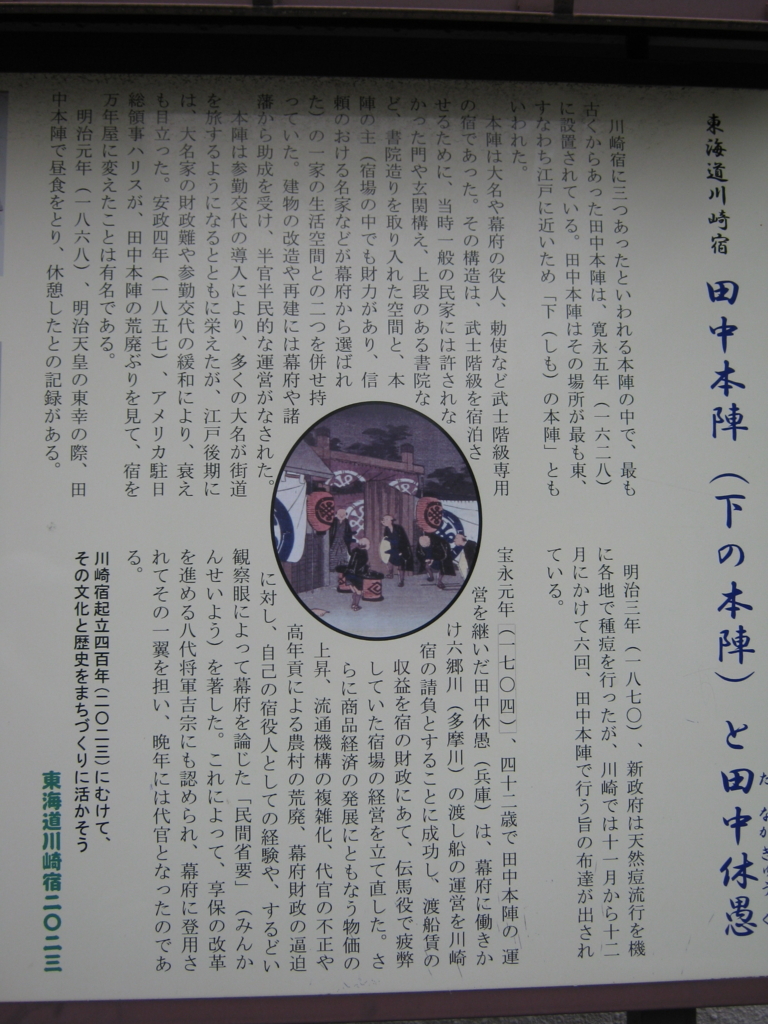 東海道川崎宿 田中本陣(下の本陣)と田中休愚
たなかきゅうぐ
川崎宿に三つあったといわれる本陣の中で、最も
古くからあった田中本陣は、寛永五年(一六二八)
に設置されている。田中本陣はその場所が最も東、
すなわち江戸に近いため「下(しも)の本陣」とも
いわれた。
本陣は大名や幕府の役人、勅使など武士階級専用
の宿であった。その構造は、武士階級を宿泊さ
せるために、当時一般の民家には許されな
かった門や玄関構え、上段のある書院な
ど、書院造りを取り入れた空間と、本
陣の主(宿場の中でも財力があり、信
頼のおける名家などが幕府から選ばれ
た)の一家の生活空間との二つを併せ持
っていた。建物の改造や再建には幕府や諸
藩から助成を受け、半官半民的な運営がなされた。
本陣は参勤交代の導入により、多くの大名が街道
を旅するようになるとともに栄えたが、江戸後期に
は、大名家の財政難や参勤交代の緩和により、衰え
も目立った。安政四年(一八五七)、アメリカ駐日
総領事ハリスが、田中本陣の荒廃ぶりを見て、宿を
万年屋に変えたことは有名である。
明治元年(一八六八)、明治天皇の東幸の際、田
中本陣で昼食をとり、休憩したとの記録がある。
明治三年(一八七〇)、新政府は天然痘流行を機
に各地で種痘を行ったが、川崎では十一月から十二
月にかけて六回、田中本陣で行う旨の布達が出され
ている。
宝永元年(一七〇四)、四十二歳で田中本陣の運
営を継いだ田中休愚(兵庫)は、幕府に働きか
け六郷川(多摩川)の渡し船の運営を川崎
宿の請負とすることに成功し、渡船賃の
収益を宿の財政にあて、伝馬役で疲弊
していた宿場の経営を立て直した。さ
らに商品経済の発展にともなう物価の
上昇、流通機構の複雑化、代官の不正や
高年貢による農村の荒廃、幕府財政の逼迫
に対し、自己の宿役人としての経験や、するどい
観察眼によって幕府を論じた「民間省要」(みんか
んせいよう)を著した。これによって、享保の改革
を進める八代将軍吉宗にも認められ、幕府に登用さ
れてその一翼を担い、晩年には代官となったのであ
る。
川崎宿起立四百年(二〇二三)にむけて、
その文化と歴史をまちづくりに活かそう
東海道川崎宿二〇二三